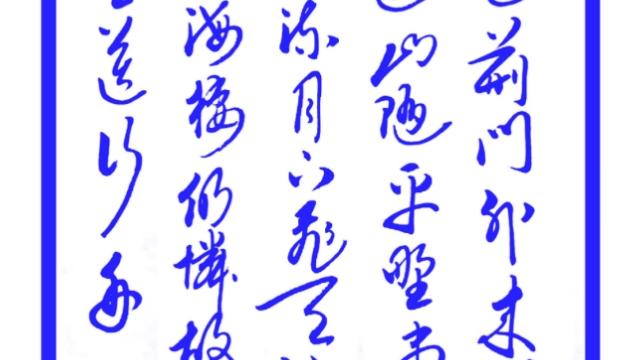 荆門外来
山随平野
流月下飛天
海楼仍憐故
送行舟